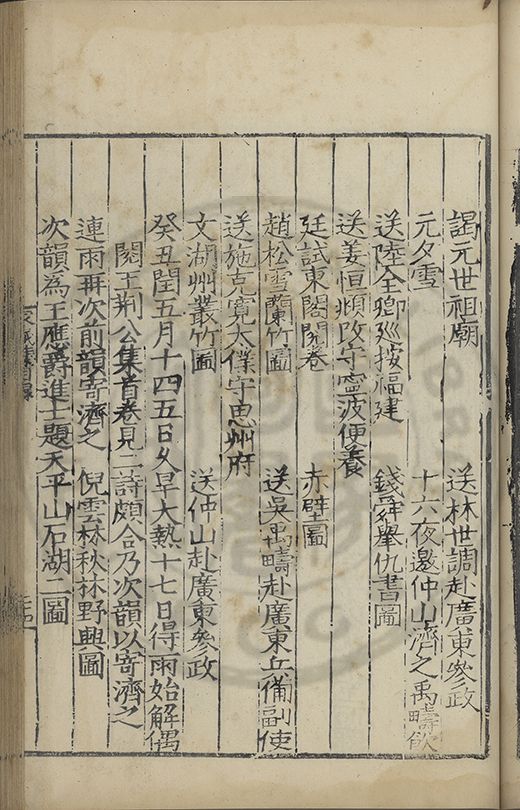 謁元世祖廟　送林世調赴廣東參政
元夕雪　十六夜邀仲山濟之禹疇飲
送陸全卿廵按福建　錢舜舉仇書圖
送姜恒頫改守寧波便養
廷試東閣閱卷　赤壁圖
趙松雪蘭竹圖　送吳禹疇赴廣東兵備副使
送施克寬太僕守思州府
文湖州叢竹圖　送仲山赴廣東參政
癸丑閏五月十四五日久旱大熱十七日得雨始解偶
閱王荊公集首卷見二詩頗合乃次韻以寄濟之
連雨再次前韻寄濟之　倪雲林秋林野興圖
次韻為王應爵進士題天平山石湖二圖